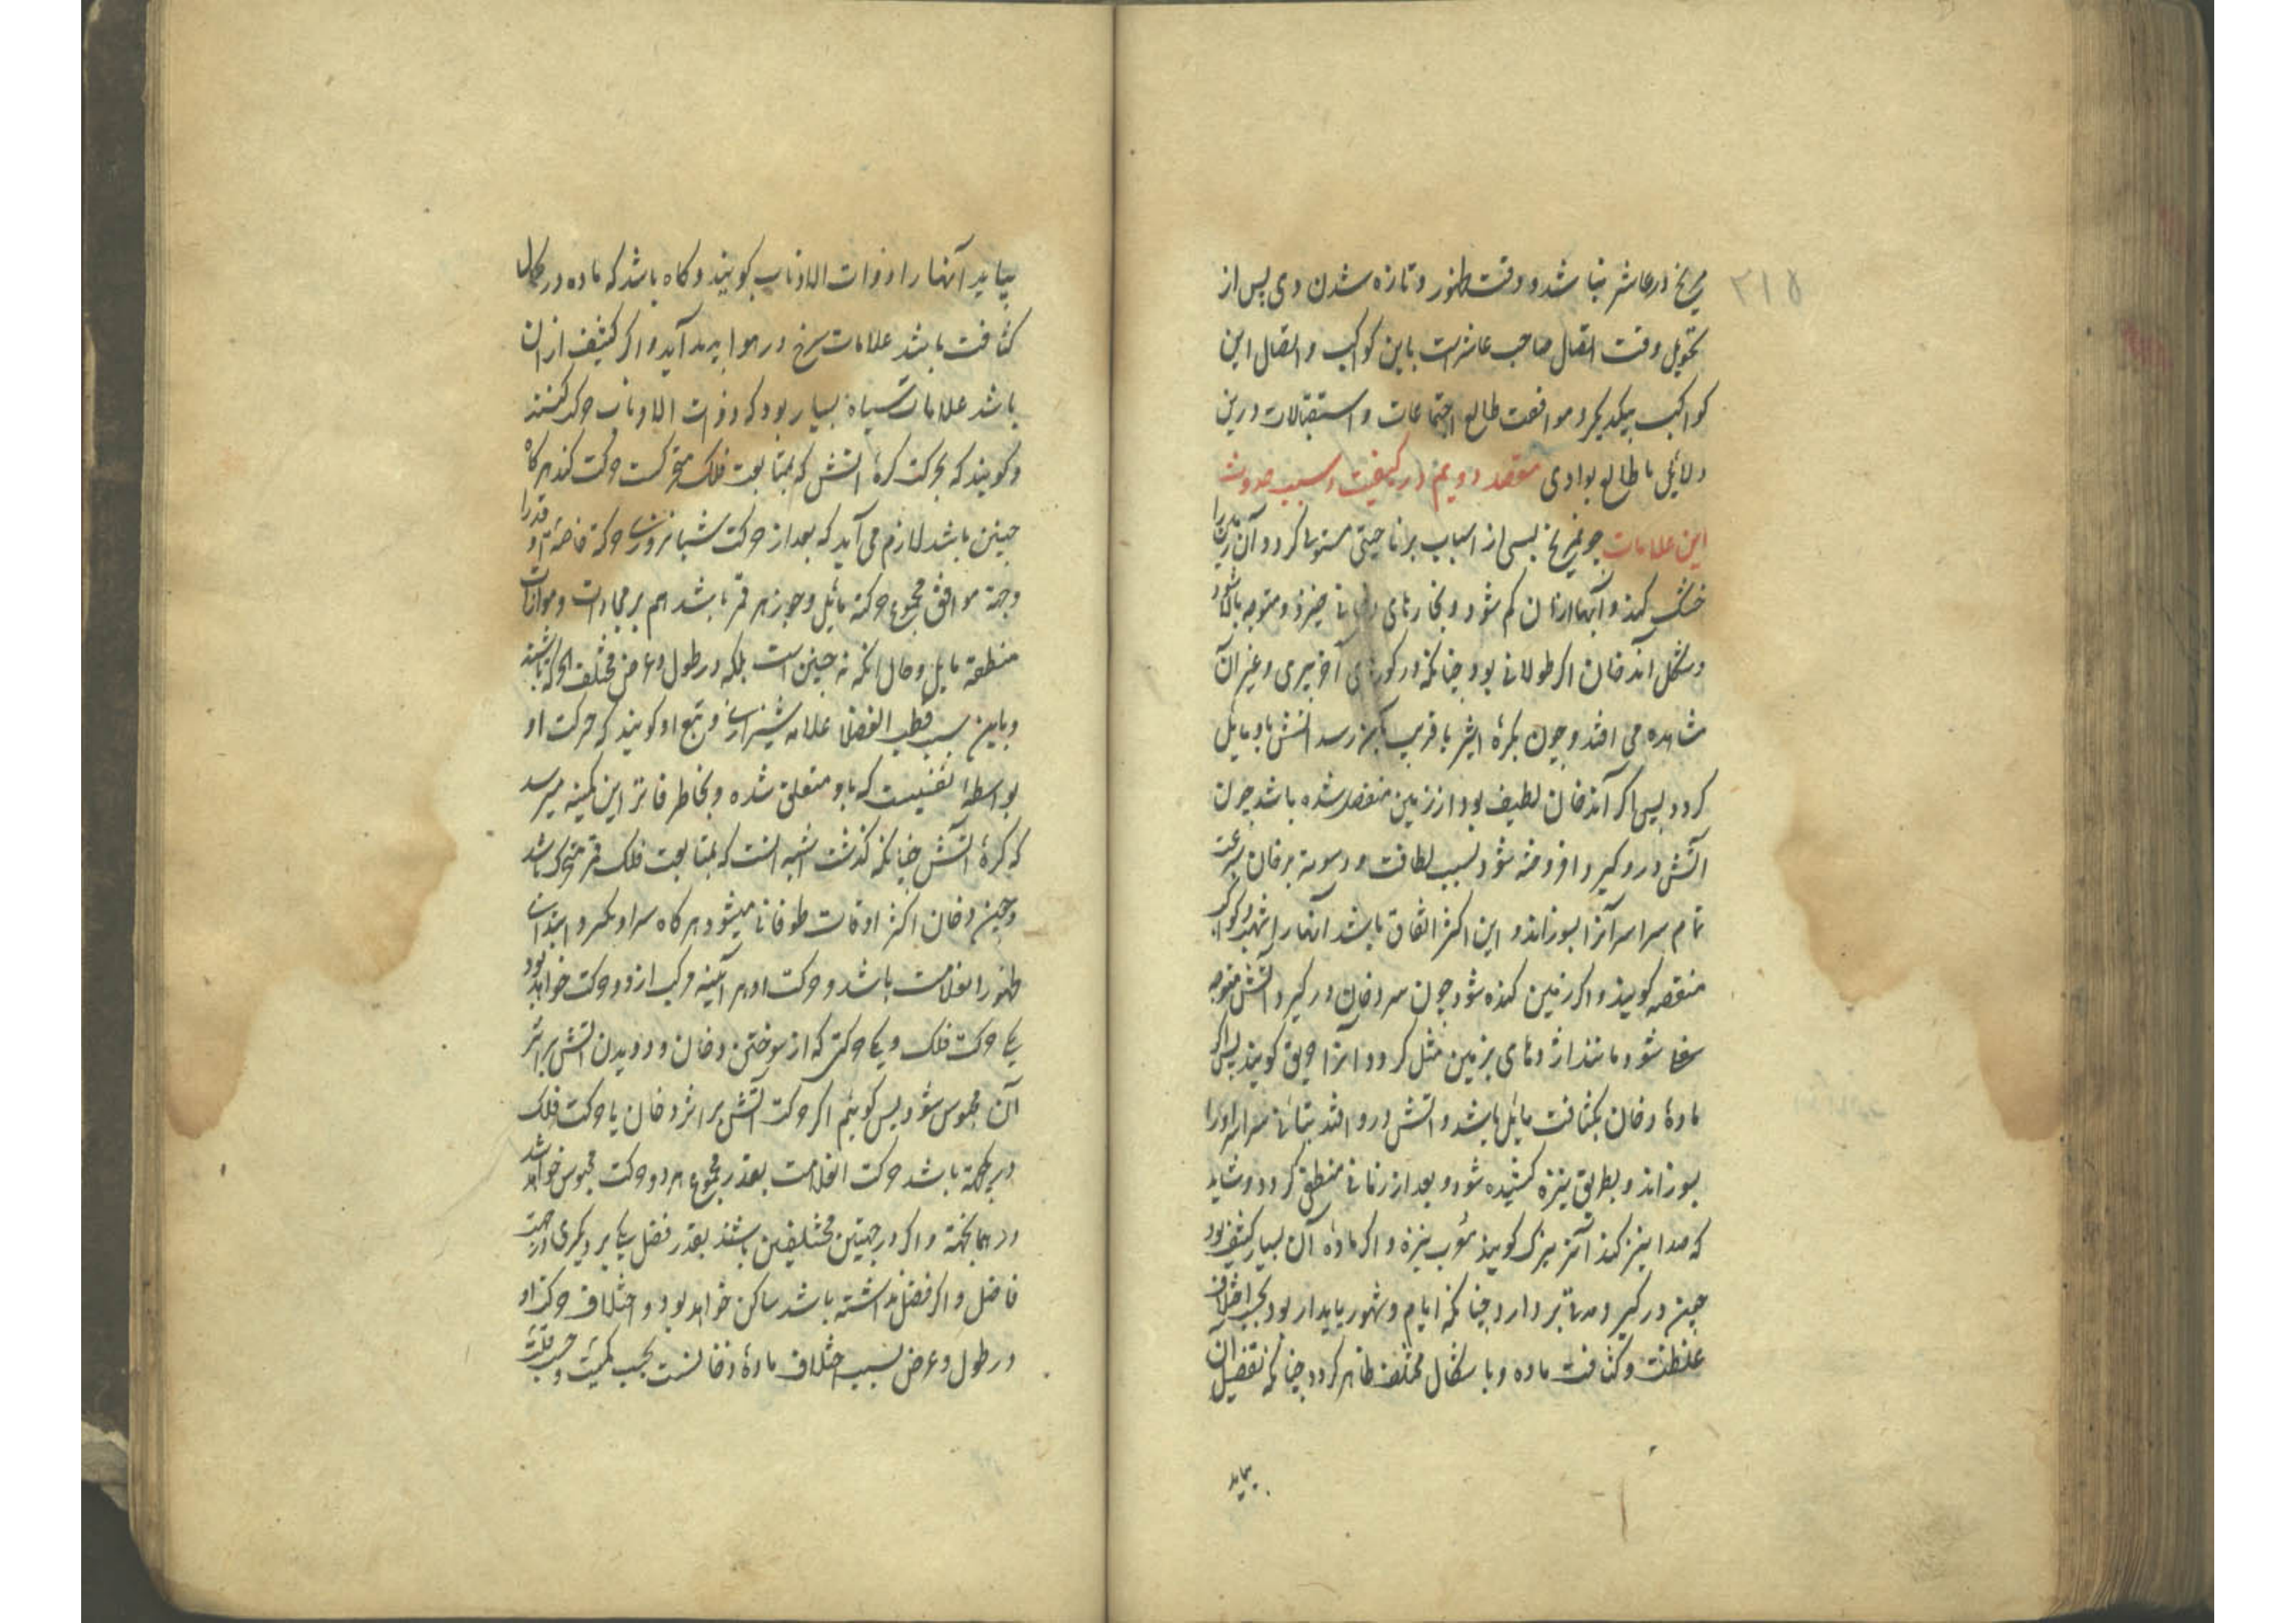 ۲۱۵
مریخ در عاشر نباشد و وقت ظهور و تازه شدن وی پس از
تحویل وقت اتصال صاحب عاشر است باین کواکب و اتصال این
کواکب بیکدیگر و موافقت طالع اجتماعات و استقبالات درین
دلائل با طالع بوادی مقصد دویم در کیفیت و سبب حدوث
این علامات چو مریخ بسی از اسباب بر ناحیتی مستولی کردد آن زمین را
خشک کند و آبها از آن کم شود و بخارهای دخانی خیزد و متوجه بالا شود
و شکل آن دخان اکر طولانی بود چنانکه در کورهای آجرپزی و غیر آن
مشاهده می افتد و چون بکرهٔ اثیر یا قریب بآن رسد آتش باو مایل
کردد پس اکر آن دخان لطیف بود و از زمین منفصل شده باشد چون
آتش درو کیرد افروخته شود بسبب لطافت و دسومة بر فان بسرعت
تمام سراسر آنرا بسوزاند و این اکثر اتفاق باشد آنها را شهب و کواکب
منقصه کویند و اکر زمین کنده شود چون سر دخان در کیرد آتش متوجه
سفل شود مانند اژدهای بزمین متصل کردد آنرا حریق کویند پس اکر
مادهٔ دخان بکثافت مایل باشد و آتش درو افتد بتأنی سراسر او را
بسوزاند و بطریق نیزه کشیده شود و بعد از زمانی منطفی کردد و شاید
که صدا نیز کند آنرا نیزک کویند نیزه و اکر مادهٔ آن بسیار کثیف بود
چون در کیرد مدتی بر دارد چنانکه ایام و شهور پایدار بود بحسب اختلاف
غلظت و کثافت ماده و با شکال مختلف ظاهر کردد چنانکه تفصیل آن
بیاید
بیاید آنها را ذوات الاذناب کویند و کاه باشد که ماده در کمال
کثافت باشد علامات سرخ در هوا پدید آید و اکر کثیف از آن
باشد علامات سیاه بسیار بود که ذوات الاذناب حرکت کنند
و کویند که بحرکت کرهٔ آتش که بمتابعت فلک متحرکست حرکت کند هر کاه
چنین باشد لازم می آید که بعد از حرکت شبانروزی حرکة خاصهٔ او قدرا
وجهة موافق مجموع حرکة مایل و جوزهر قمر باشد هم بر محاذات و موازات
منطقة مایل و حال آنکه نه چنین است بلکه در طول و عرض مختلف الحرکة باشند
و باین سبب قطب الفضلا علامه شیرازی و تبع او کویند که حرکت او
بواسطهٔ نفسیست که باو متعلق شده و بخاطر فاتر این کمینه میرسد
که کرهٔ آتش چنانکه کذشت اشبه آنست که بمتابعت فلک قمر متحرک باشد
و چنین دخان اکثر اوقات طوفانی میشود هر کاه سر او بکیرد ابتدای
ظهور انعلامت باشد و حرکت او هر آینه مرکب از دو حرکت خواهد بود
یکی حرکت فلک و یکی حرکتی که از سوختن دخان و دویدن آتش بر اثر
آن محسوس شود پس کوئیم اکر حرکت آتش بر اثر دخان با حرکت فلک
در یکجهة باشد حرکت انعلامت بقدر مجموع هر دو حرکت محسوس خواهد شد
در همانجهة و اکر در جهتین مختلفین باشند بقدر فضل یکی بر دیکری در جهت
فاضل و اکر فضل نداشته باشد ساکن خواهد بود و اختلاف حرکت او
در طول و عرض بسبب اختلاف مادهٔ دخانست بحسب کمیت و